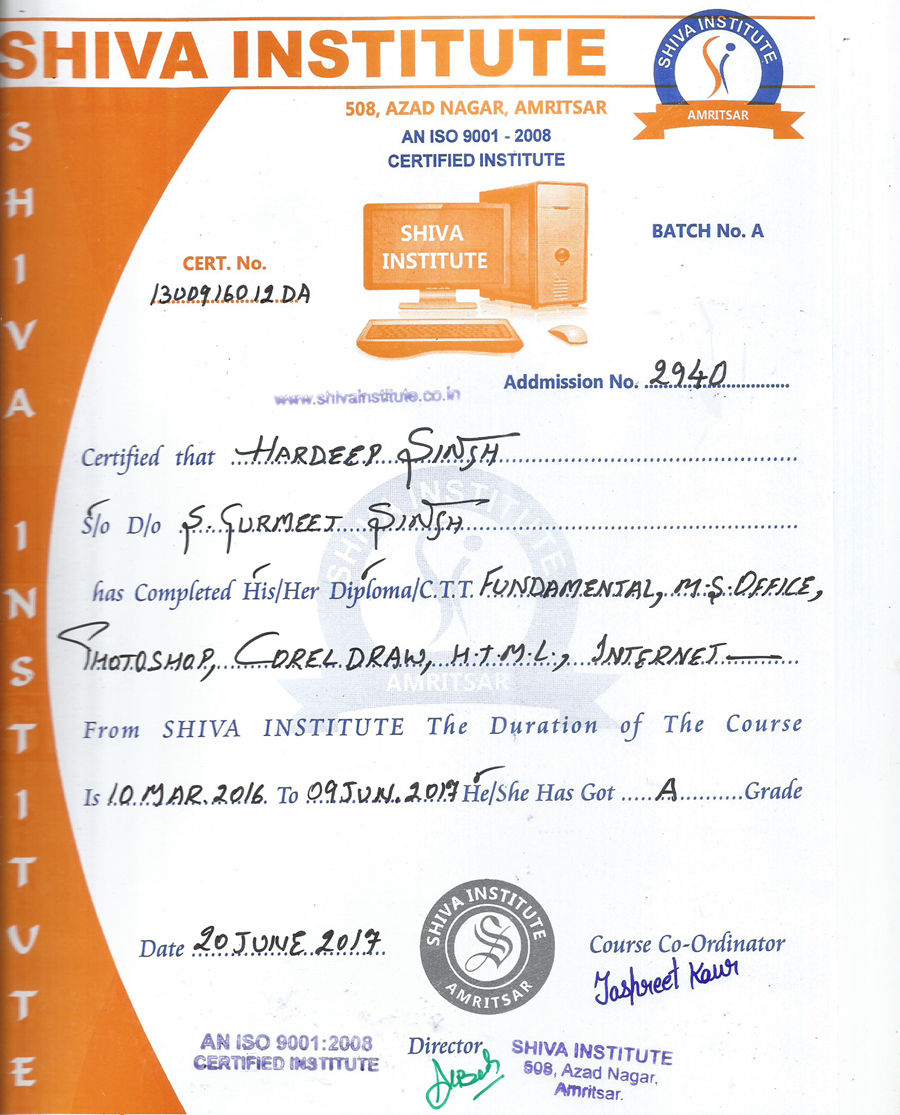 SHIVA INSTITUTE
SHIVA INSTITUTE
AMRITSAR
508, AZAD NAGAR, AMRITSAR
AN ISO 9001 - 2008
CERTIFIED INSTITUTE
SHIVA INSTITUTE
SHIVA
INSTITUTE
BATCH No. A
CERT. No.
1300916012DA
Addmission No. 2940
www.shivainstitute.co.in
Certified that HARDEEP SINGH
S/o D/o S. GURMEET SINGH
has Completed His/Her Diploma/C.T.T. FUNDAMENTAL, M.S. OFFICE,
PHOTOSHOP, COREL DRAW, H.T.M.L., INTERNET
SHIVA INSTITUTE
AMRITSAR
From SHIVA INSTITUTE The Duration of The Course
Is 10 MAR. 2016 To 09 JUN. 2017 He/She Has Got A Grade
SHIVA INSTITUTE
S
AMRITSAR
Date 20 JUNE 2017
Course Co-Ordinator
Jaspreet Kaur
AN ISO 9001:2008
CERTIFIED INSTITUTE
Director
SHIVA INSTITUTE
508, Azad Nagar,
Amritsar.